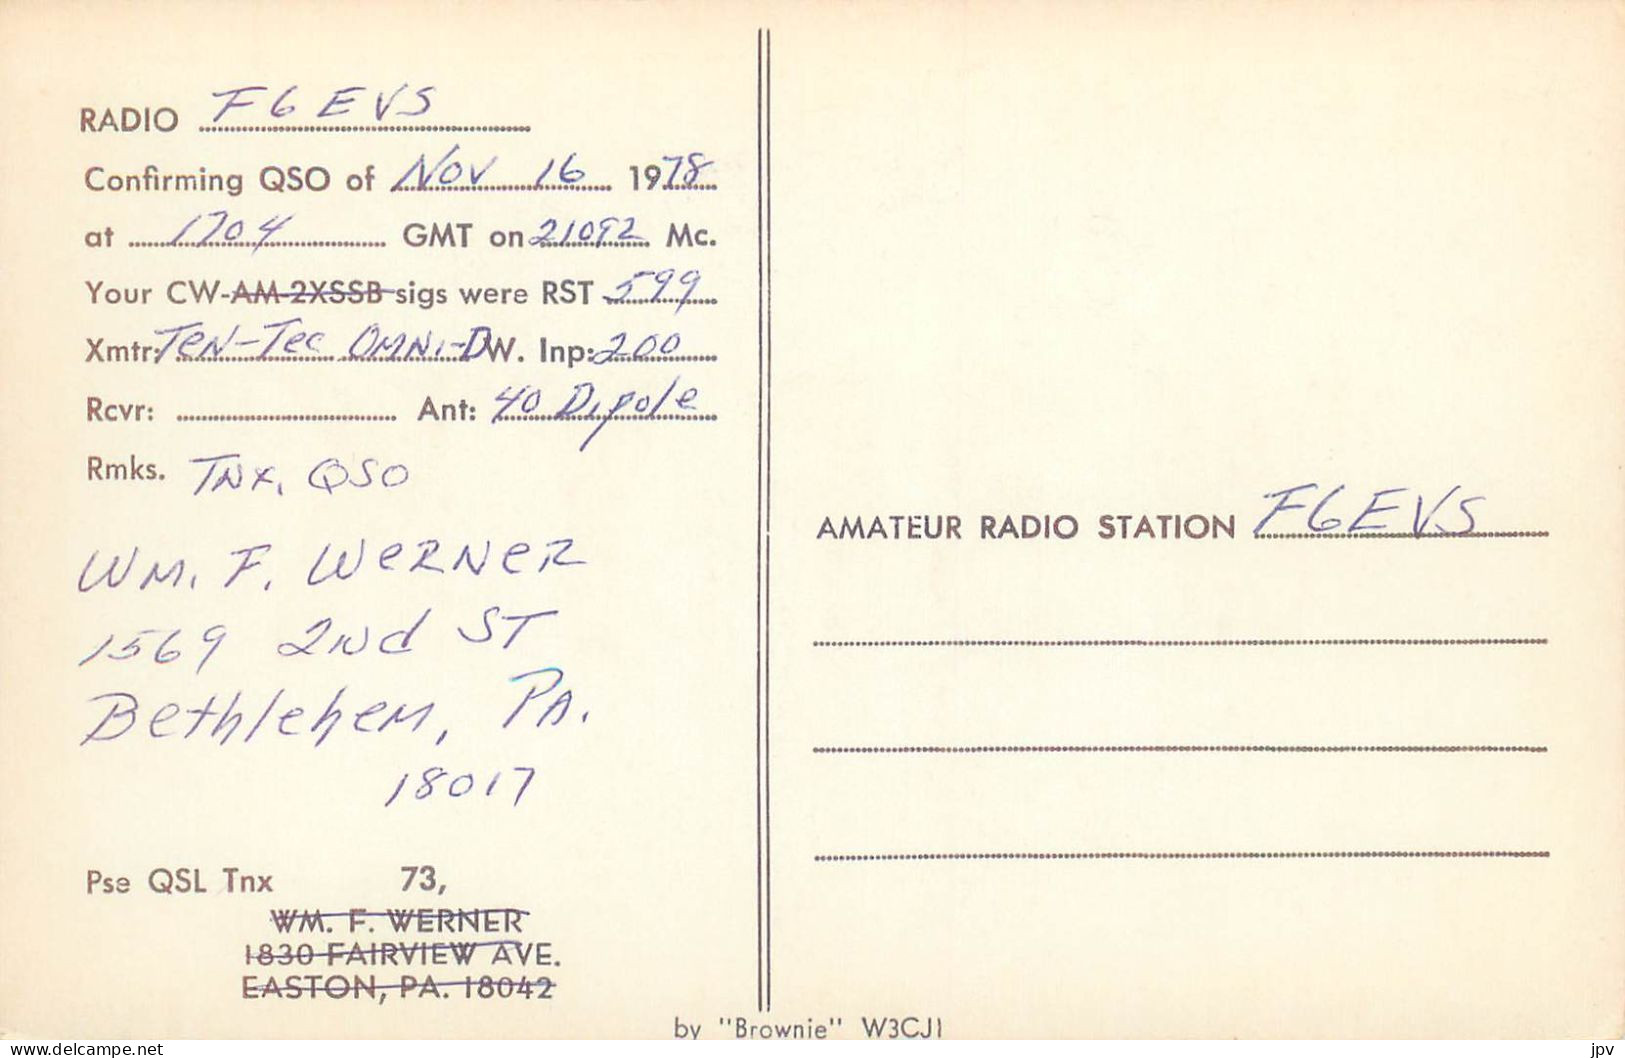 RADIO F6EVS
Confirming QSO of Nov 16 1978
at 1704 GMT on 21092 Mc.
Your CW-AM-2XSSB sigs were RST 599
Xmtr: Ten-Tec OMNI-D W. Inp: 200
Rcvr: Ant: 40 Dipole
Rmks. TNX. QSO
WM. F. WERNER
1569 2nd ST
Bethlehem, PA.
18017
Pse QSL Tnx 73,
WM. F. WERNER
1830 FAIRVIEW AVE.
EASTON, PA. 18042
AMATEUR RADIO STATION F6EVS
by "Brownie" W3CJI
www.delcampe.net
jpv